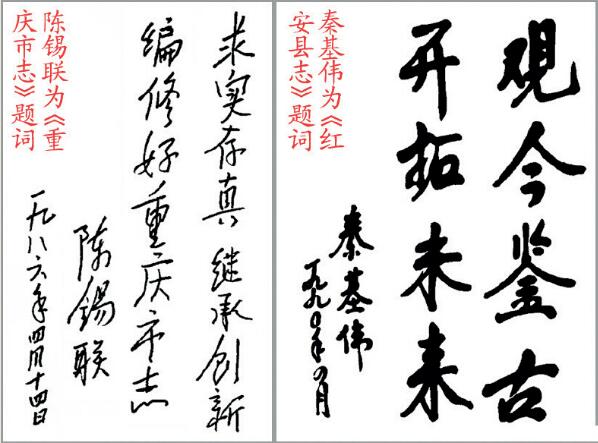 陈锡联为《重
庆市志》题词
求实存真 继承创新
编修好重庆市志
陈锡联
一九八六年四月十四日
秦基伟为《红
安县志》题词
观今鉴古
开拓未来
秦基伟
一九九〇年四月